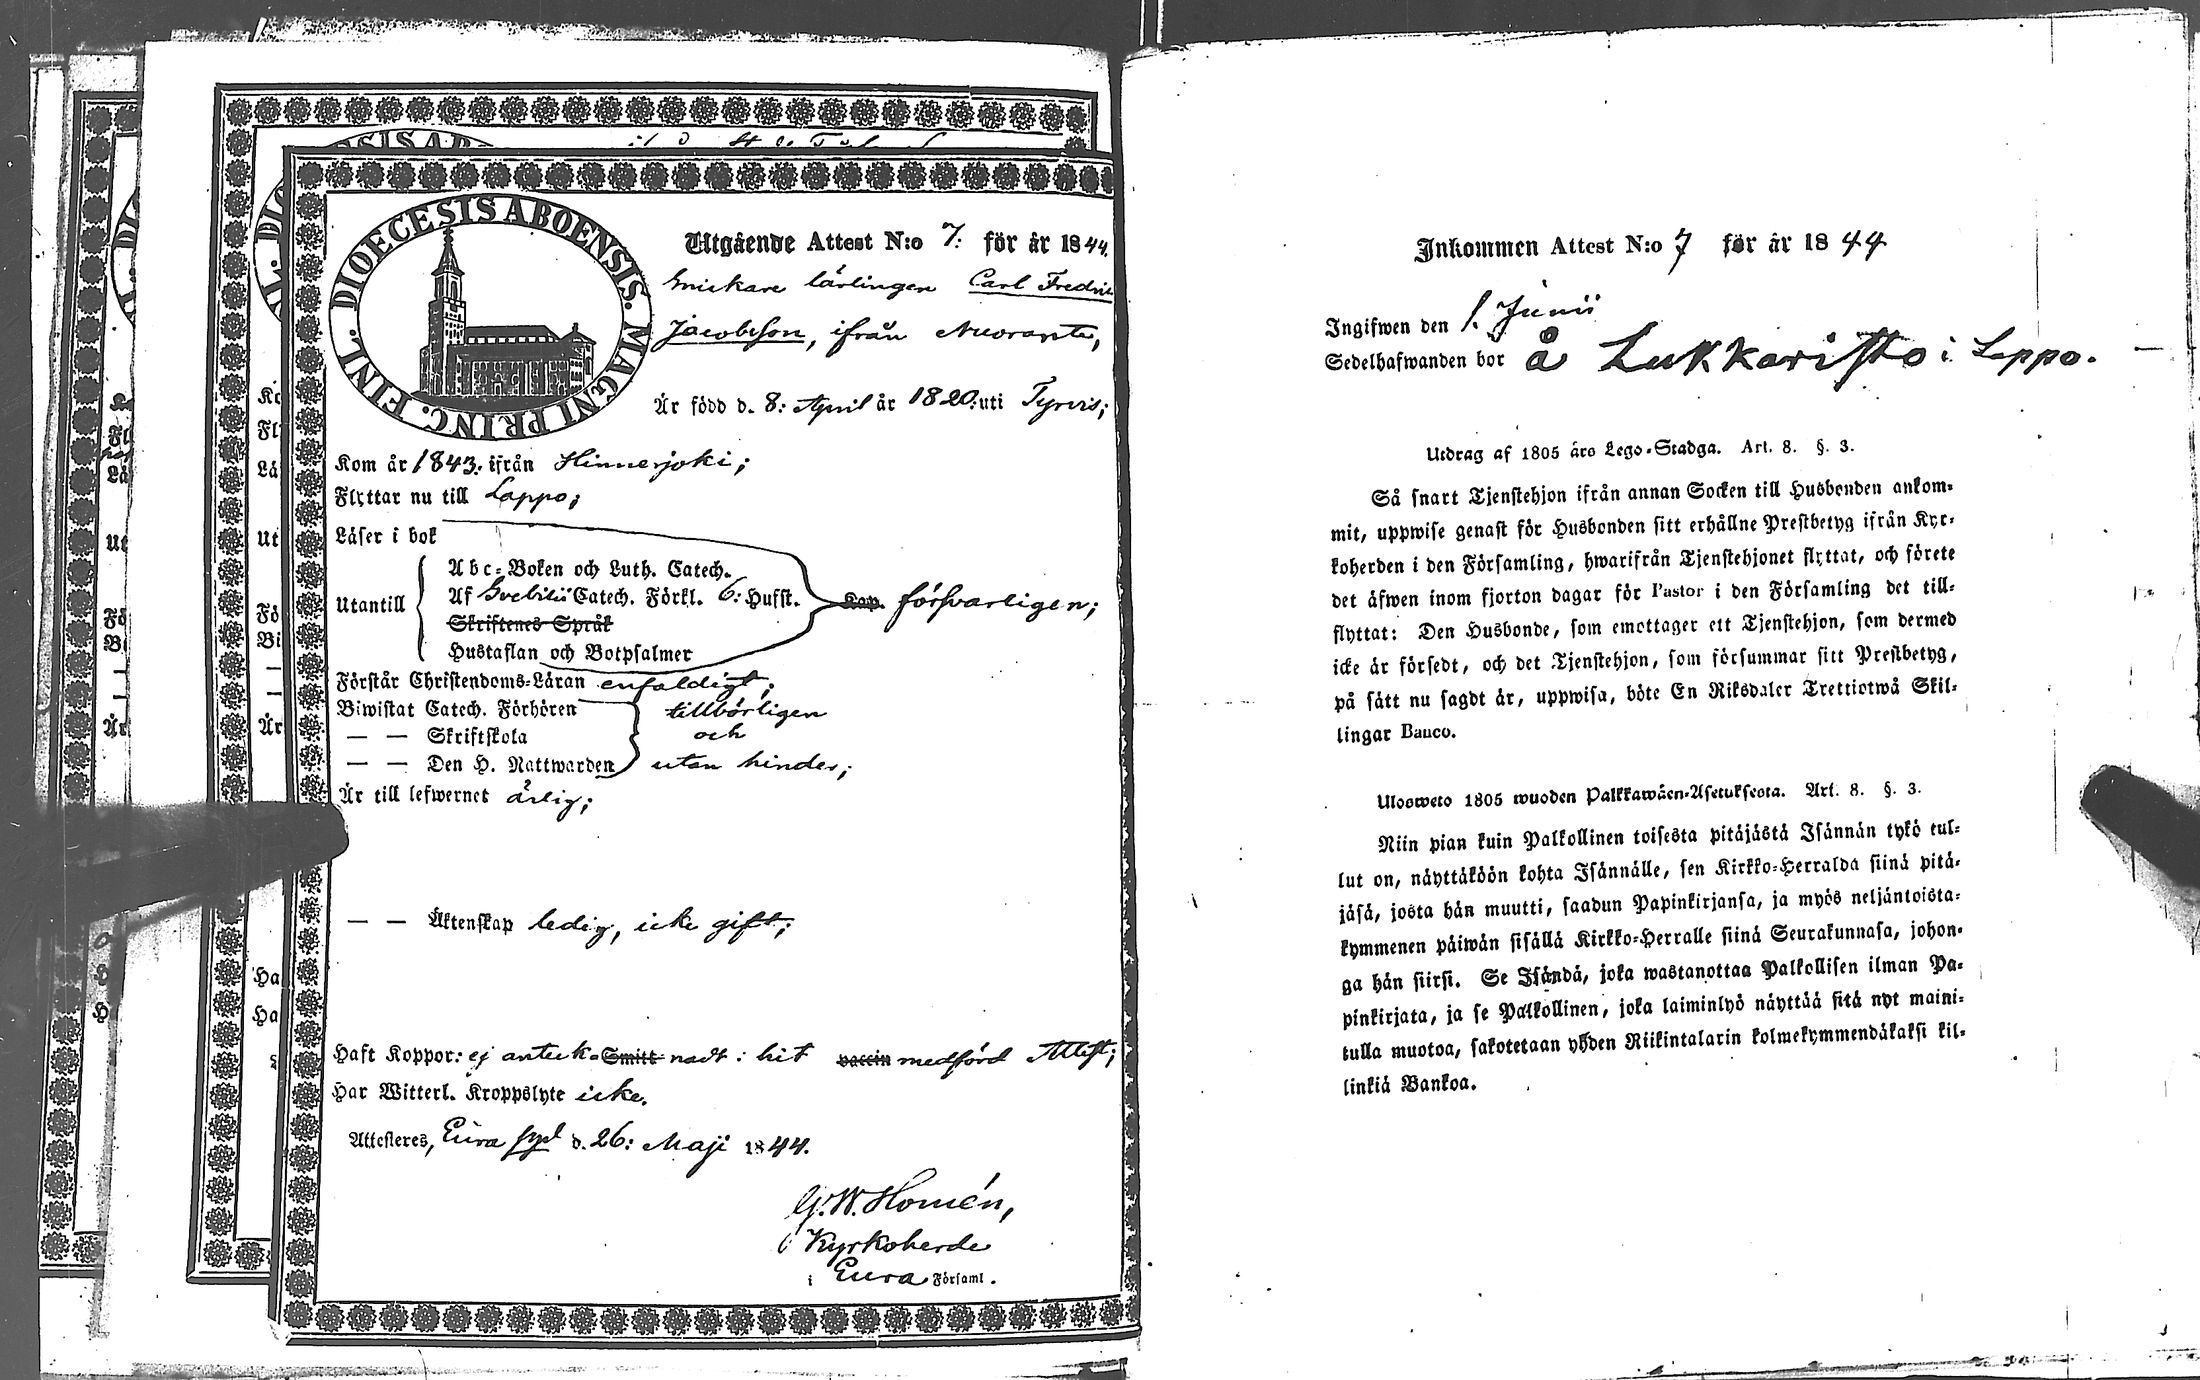 DIOECESIS ABOENSIS. MAGNI PRINC. FINL.
Utgående Attest N:o 7: för år 1844.
Snickare lärlingen Carl Fredric
Jacobsson, ifrån Nuoranta,
Är född d. 8: April år 1820: uti Tyrvis;
Kom år 1843. ifrån Hinnerjoki;
Flyttar nu till Lappo;
Läser i bok
Abc-Boken och Luth. Catech.
Utantill Af Svebilii Catech. Förkl. 6: Hufst. Kap. försvarligen;
Skriftenes Språk
Hustaflan och Botpsalmer
Förstår Christendoms-Läran enfaldigt;
Biwistat Catech. Förhören tillbörligen
— — Skriftskola och
— — Den H. Nattwarden utan hinder;
Är till lefwernet ärlig;
— — Äktenskap ledig, icke gift;
Haft Koppor: ej anteck- Smitt nadt i hit vaccin medförd Attest;
Har Witterl. Kroppslyte icke.
Attesteres, Eura d. 26: Maji 1844.
G. W. Homén,
Kyrkoherde
i Eura Församl.
Inkommen Attest N:o 7 för år 1844
Ingifwen den 1. Junii
Sedelhafwanden bor å Lukkaristo i Lappo.
Utdrag af 1805 års Lego-Stadga. Art. 8. §. 3.
Så snart Tjenstehjon ifrån annan Socken till Husbonden ankom-
mit, uppwise genast för Husbonden sitt erhållne Prestbetyg ifrån Kyr-
koherden i den Församling, hwarifrån Tjenstehjonet flyttat, och förete
det äfwen inom fjorton dagar för Pastor i den Församling det till-
flyttat: Den Husbonde, som emottager ett Tjenstehjon, som dermed
icke är försedt, och det Tjenstehjon, som försummar sitt Prestbetyg,
på sätt nu sagdt är, uppwisa, böte En Riksdaler Trettiotwå Skil-
lingar Banco.
Ulosweto 1805 wuoden Palkkawäen-Asetuksesta. Art. 8. §. 3.
Niin pian kuin Palkollinen toisesta pitäjästä Isännän tykö tul-
lut on, näyttäköön kohta Isännälle, sen Kirkko-Herralda siinä pitä-
jäsä, josta hän muutti, saadun Papinkirjansa, ja myös neljäntoista-
kymmenen päiwän sisällä Kirkko-Herralle siinä Seurakunnasa, johon-
ga hän siirsi. Se Isändä, joka wastanottaa Palkollisen ilman Pa-
pinkirjata, ja se Palkollinen, joka laiminlyö näyttää sitä nyt maini-
tulla muotoa, sakotetaan yhden Riikintalarin kolmekymmendäkaksi kil-
linkiä Bankoa.